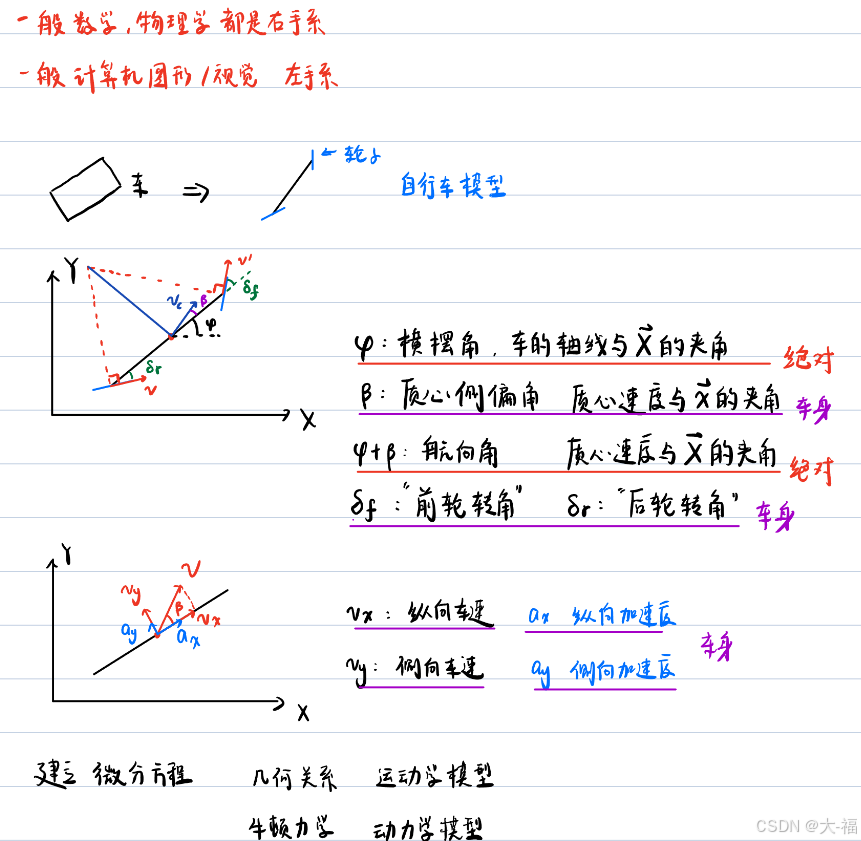 一般数学,物理学都是右手系
一般计算机图形/视觉 左手系
车 ⇒ ←轮子
自行车模型
Y v' δf
vc β φ
δr v
X
φ:横摆角,车的轴线与X⃗的夹角 绝对
β:质心侧偏角 质心速度与x⃗的夹角 车身
φ+β:航向角 质心速度与X⃗的夹角 绝对
δf:"前轮转角" δr:"后轮转角" 车身
Y v
vy β vx
ay ax
X
vx:纵向车速 ax 纵向加速度
车身
vy:侧向车速 ay 侧向加速度
建立 微分方程 几何关系 运动学模型
牛顿力学 动力学模型
CSDN @大-福